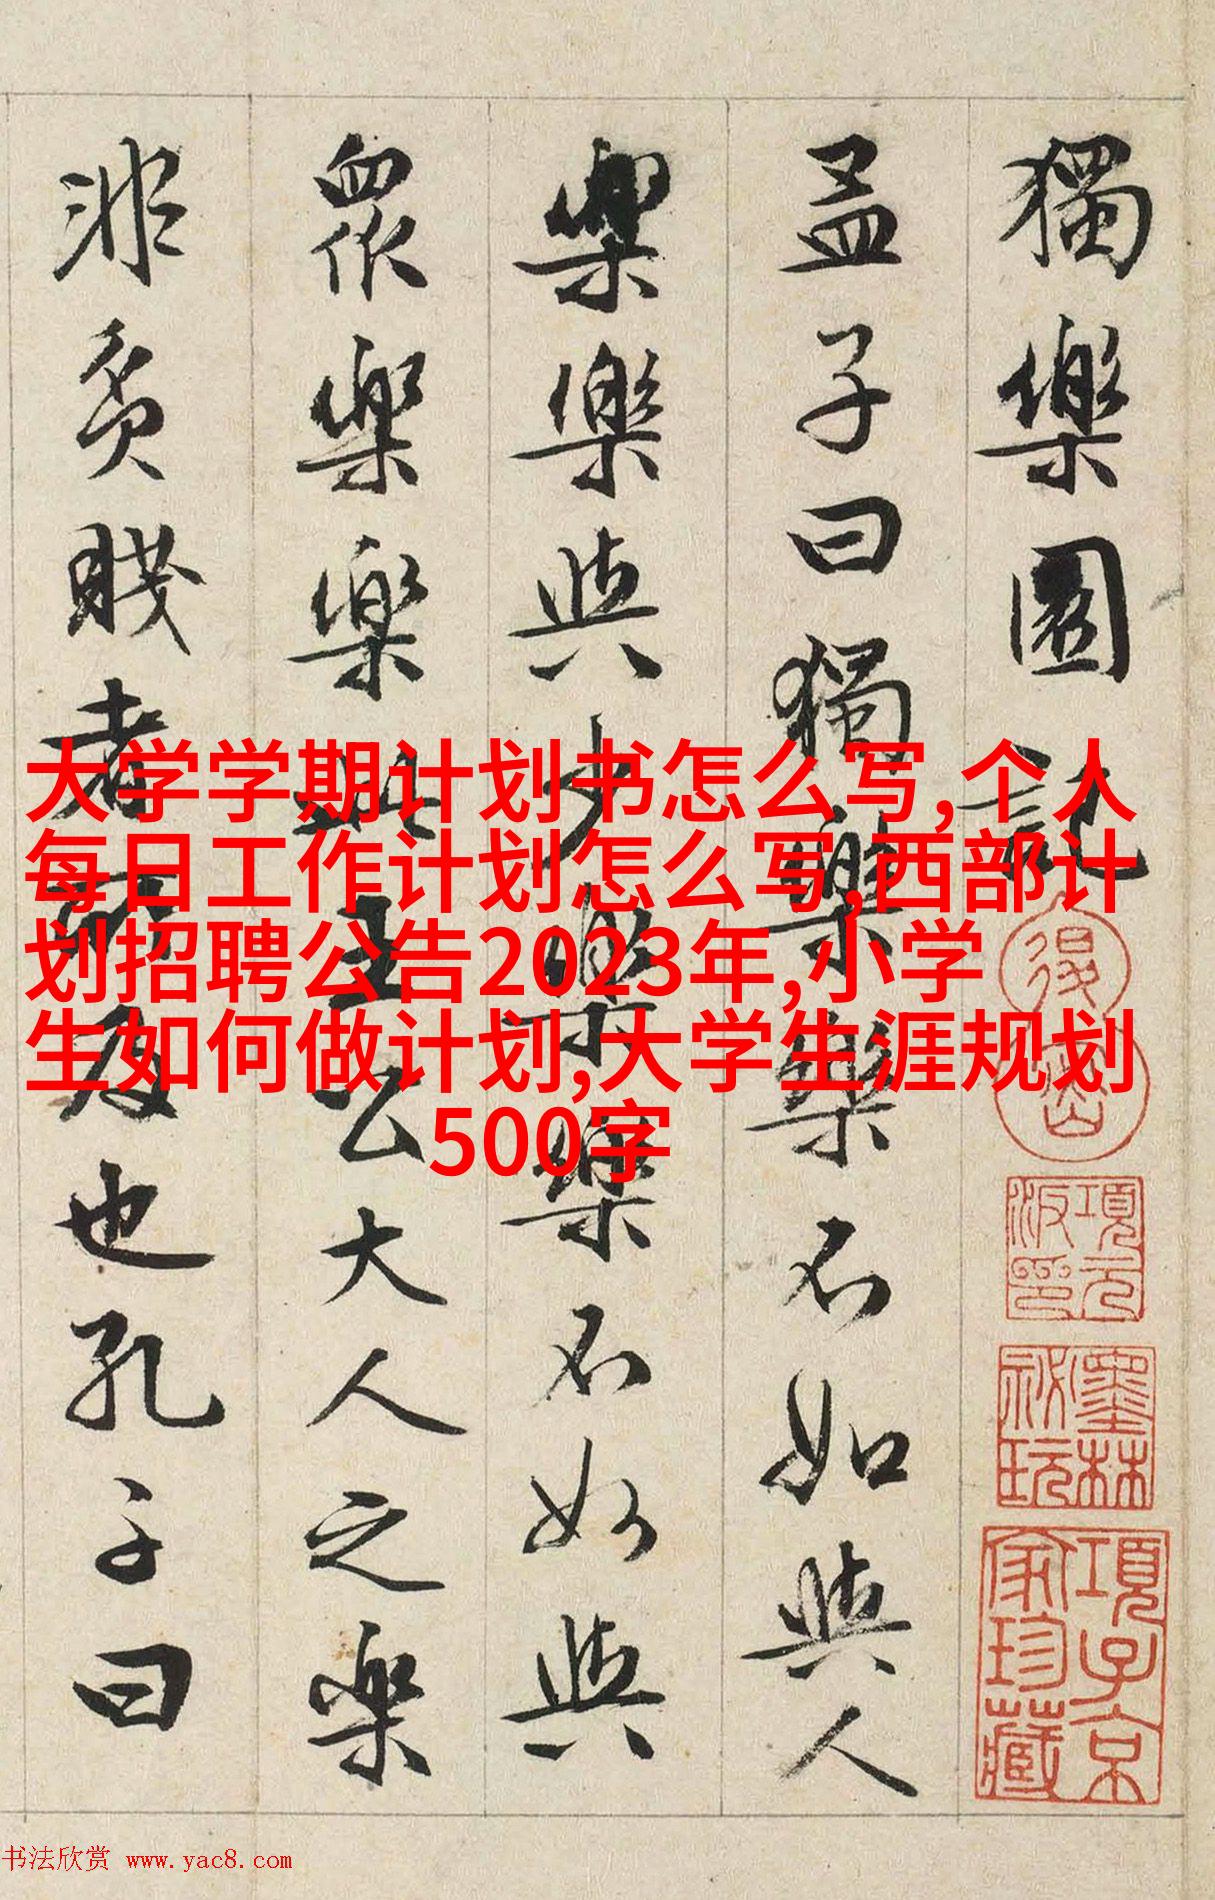 獨樂園記
孟子曰獨樂樂不如與人
樂樂與少樂樂不如與
眾樂樂此王公大人之樂
非貧賤者所及也孔子曰
大学学期计划书怎么写,个人
每日工作计划怎么写,西部计
划招聘公告2023年,小学
生如何做计划,大学生涯规划
500字
項元汴印
墨林秘玩
項子京家珍藏
书法欣赏 www.yac8.com